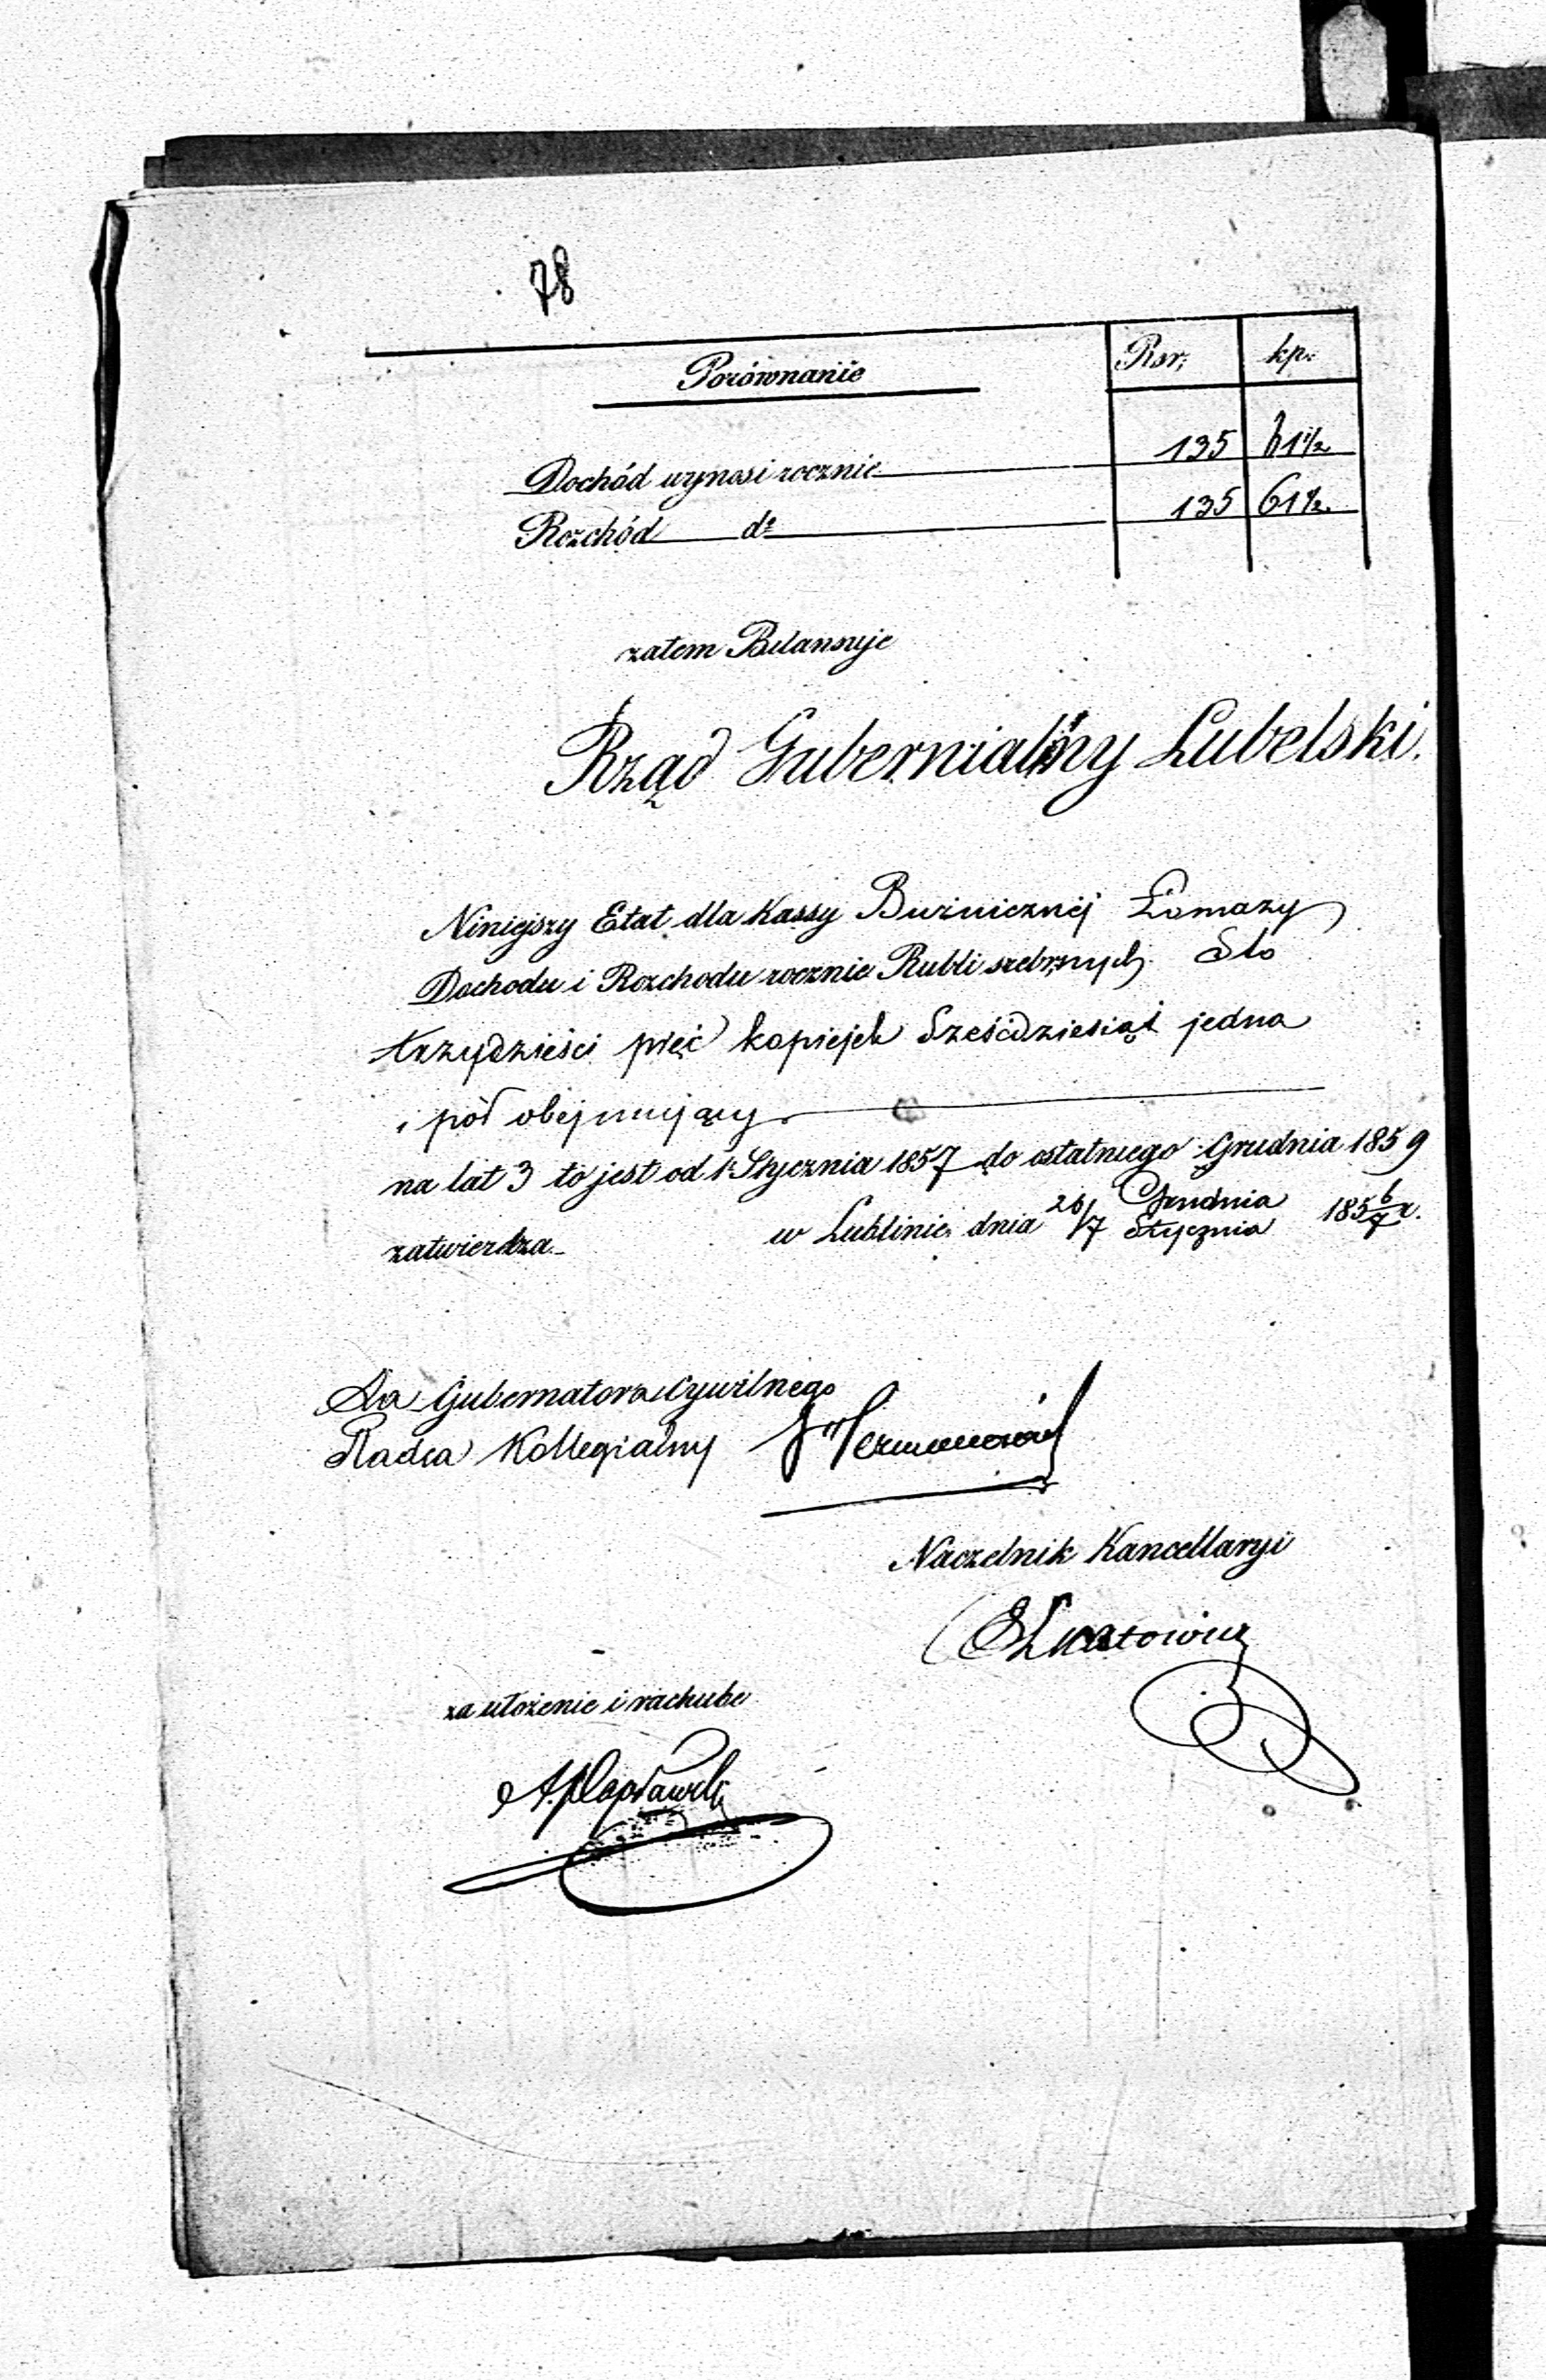 78
Porównanie Rsr; kp:
Dochód wynosi rocznie 135 61½
Rozchód do 135 61½
zatem Bilansuje
Rząd Gubernialny Lubelski.
Niniejszy Etat dla Kassy Bużnicznéj Łomazy
Dochodu i Rozchodu rocznie Rubli srebrnych Sto
trzydzieści pięć kopiejek Sześćdziesiąt jedna
i pół obejmujący
na lat 3 to jest od 1 Stycznia 1857 do ostatniego Grudnia 1859
zatwierdza w Lublinie dnia 26/7 Grudnia/Stycznia 185 6/7 r.
Za Gubernatora Cywilnego
Radca Kollegialny
Naczelnik Kancellaryi
za ułożenie i rachubę